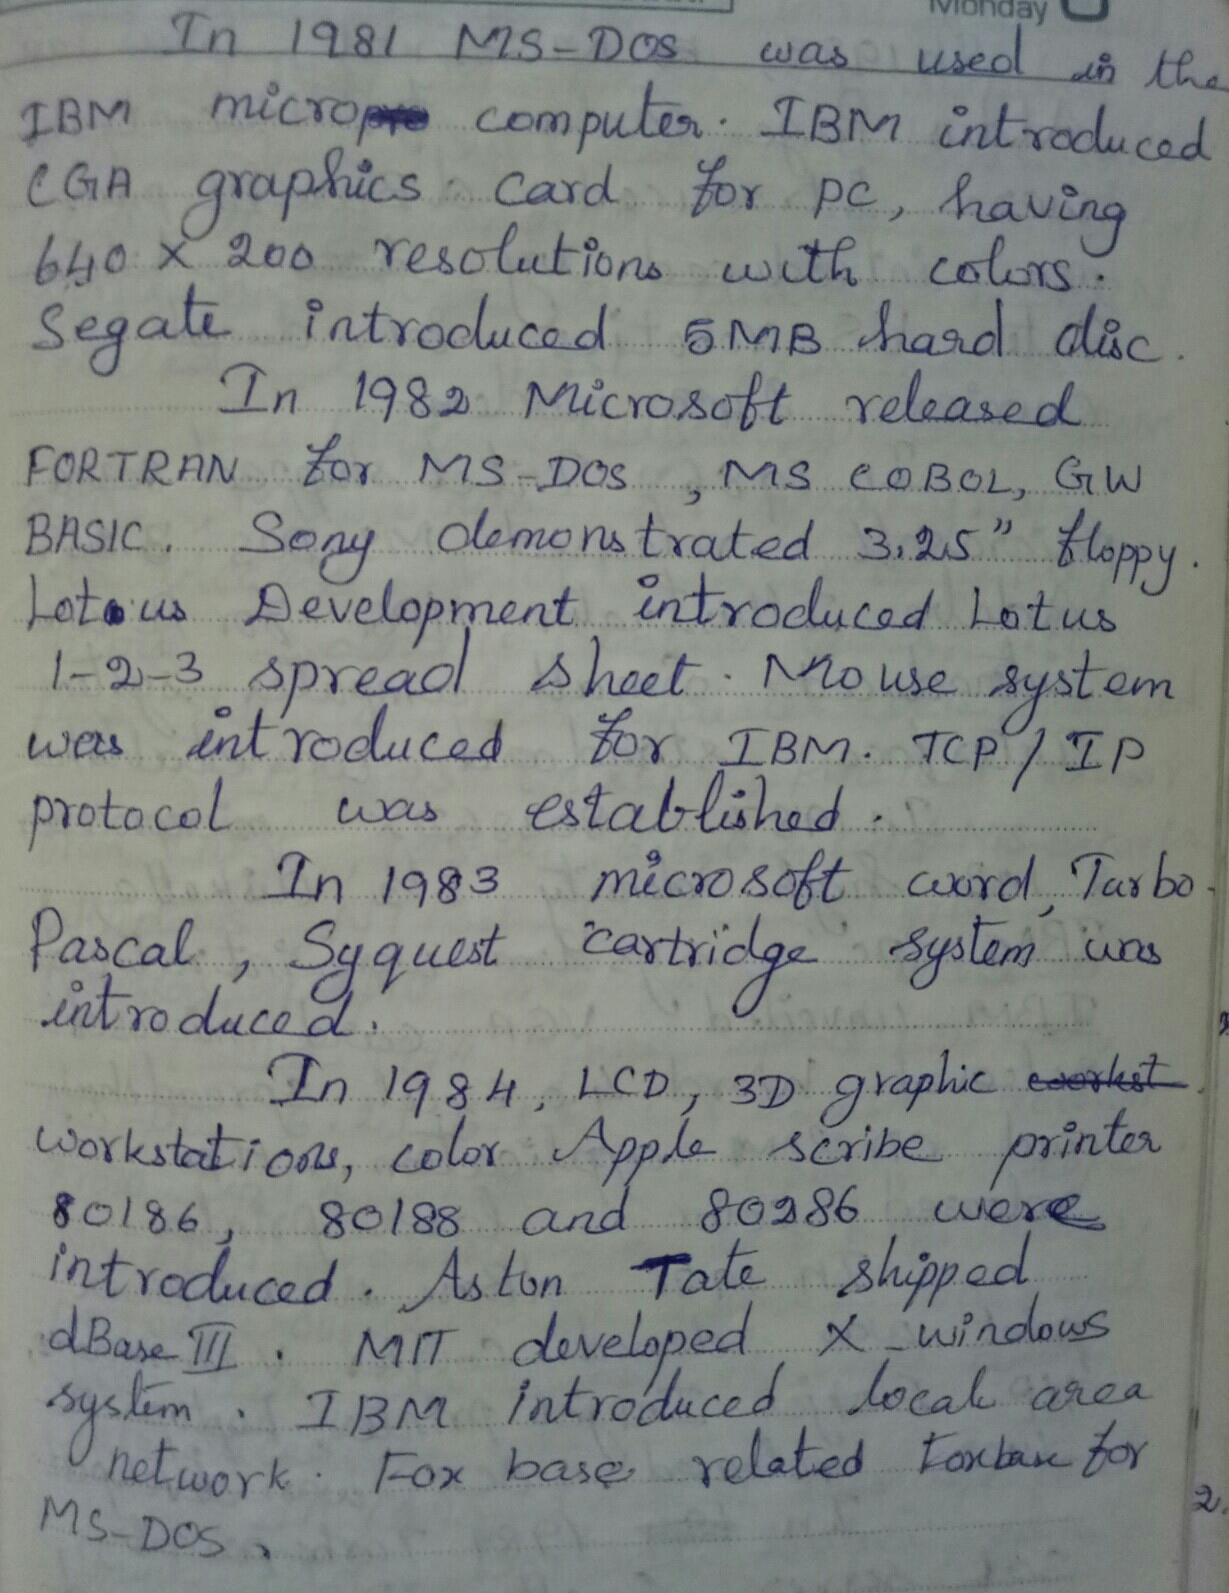 Monday
In 1981 MS-DOS was used in the
IBM micro computer. IBM introduced
CGA graphics card for PC, having
640 X 200 resolutions with colors.
Segate introduced 5MB hard disc.
In 1982 Microsoft released
FORTRAN for MS-DOS, MS COBOL, GW
BASIC. Sony demonstrated 3.25" floppy.
Lotus Development introduced Lotus
1-2-3 spread sheet. Mouse system
was introduced for IBM. TCP/IP
protocol was established.
In 1983 microsoft word, Turbo
Pascal, Syquest cartridge system was
introduced.
In 1984, LCD, 3D graphic workst
workstations, color Apple scribe printer
80186, 80188 and 80286 were
introduced. Aston Tate shipped
dBase III. MIT developed X-windows
system. IBM introduced local area
network. Fox base related Foxbase for
MS-DOS.
2.